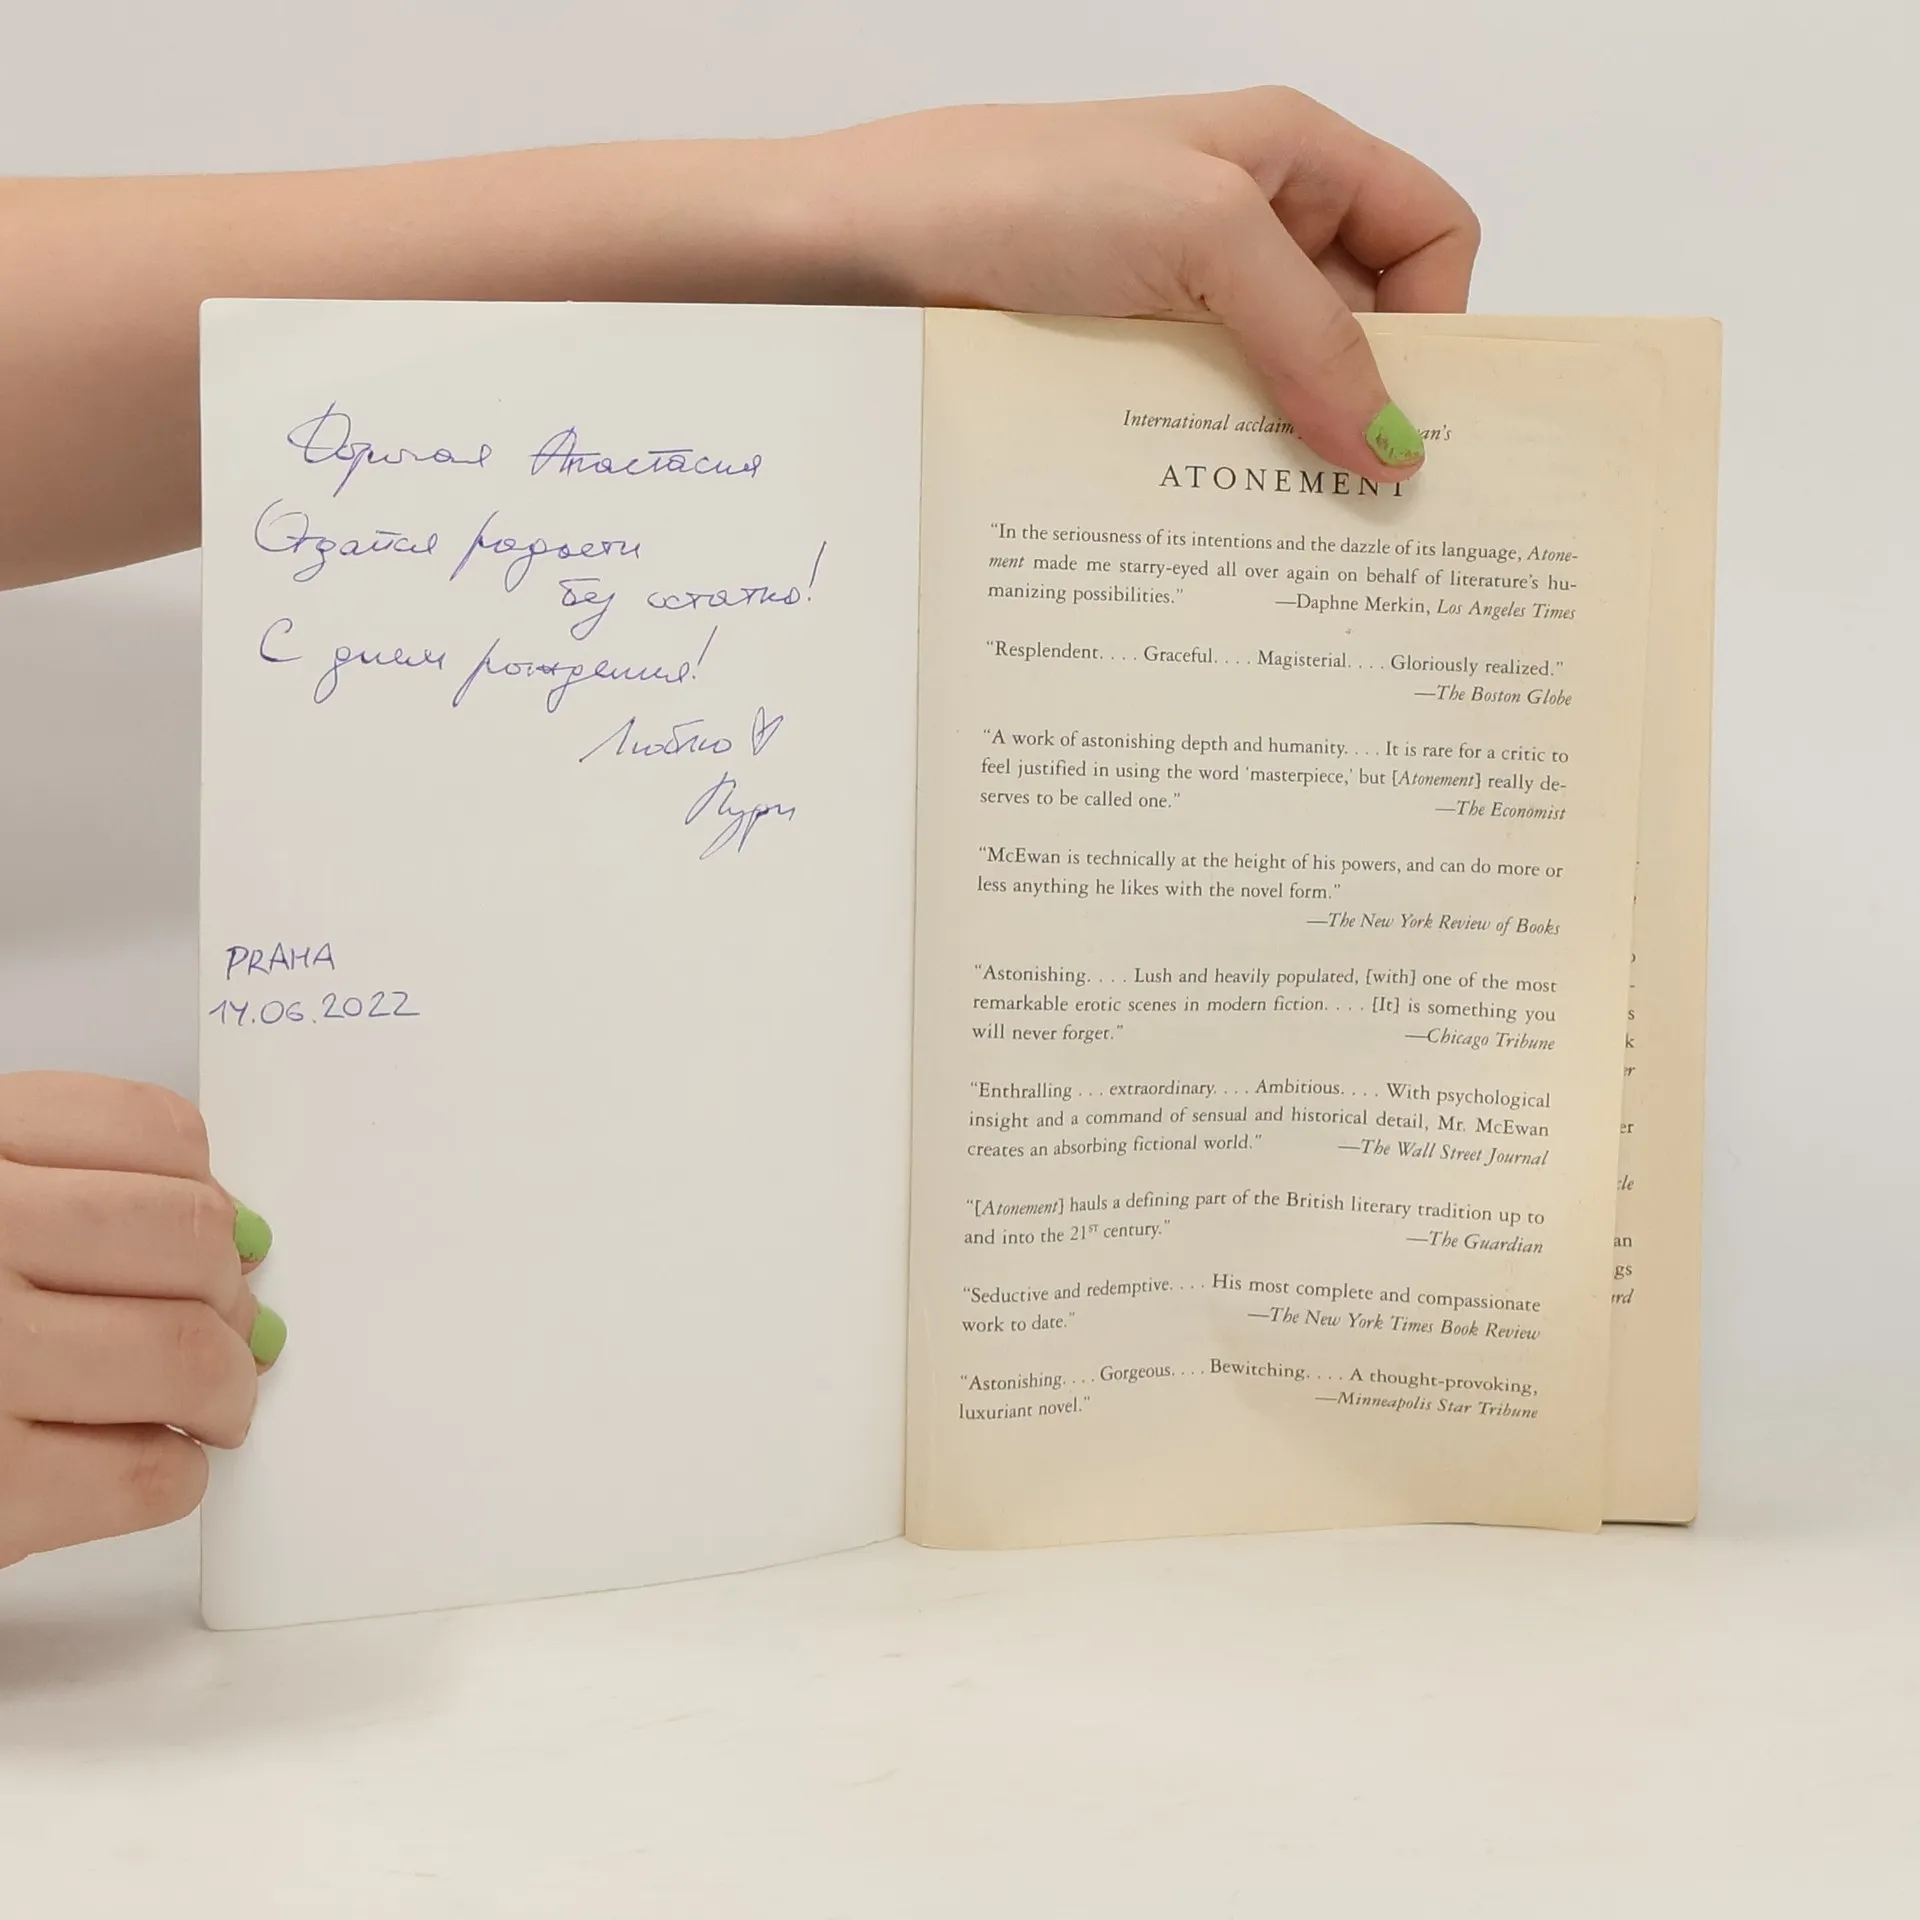 Дорогая Анастасия
Отдайся радости
без остатка!
С днем рождения!
Люблю
PRAHA
14.06.2022
International acclaim an's
ATONEMENT
“In the seriousness of its intentions and the dazzle of its language, Atone-
ment made me starry-eyed all over again on behalf of literature’s hu-
manizing possibilities.” —Daphne Merkin, Los Angeles Times
“Resplendent. . . . Graceful. . . . Magisterial. . . . Gloriously realized.”
—The Boston Globe
“A work of astonishing depth and humanity. . . . It is rare for a critic to
feel justified in using the word ‘masterpiece,’ but [Atonement] really de-
serves to be called one.” —The Economist
“McEwan is technically at the height of his powers, and can do more or
less anything he likes with the novel form.”
—The New York Review of Books
“Astonishing. . . . Lush and heavily populated, [with] one of the most
remarkable erotic scenes in modern fiction. . . . [It] is something you
will never forget.” —Chicago Tribune
“Enthralling . . . extraordinary. . . . Ambitious. . . . With psychological
insight and a command of sensual and historical detail, Mr. McEwan
creates an absorbing fictional world.” —The Wall Street Journal
“[Atonement] hauls a defining part of the British literary tradition up to
and into the 21ST century.” —The Guardian
“Seductive and redemptive. . . . His most complete and compassionate
work to date.” —The New York Times Book Review
“Astonishing. . . . Gorgeous. . . . Bewitching. . . . A thought-provoking,
luxuriant novel.” —Minneapolis Star Tribune